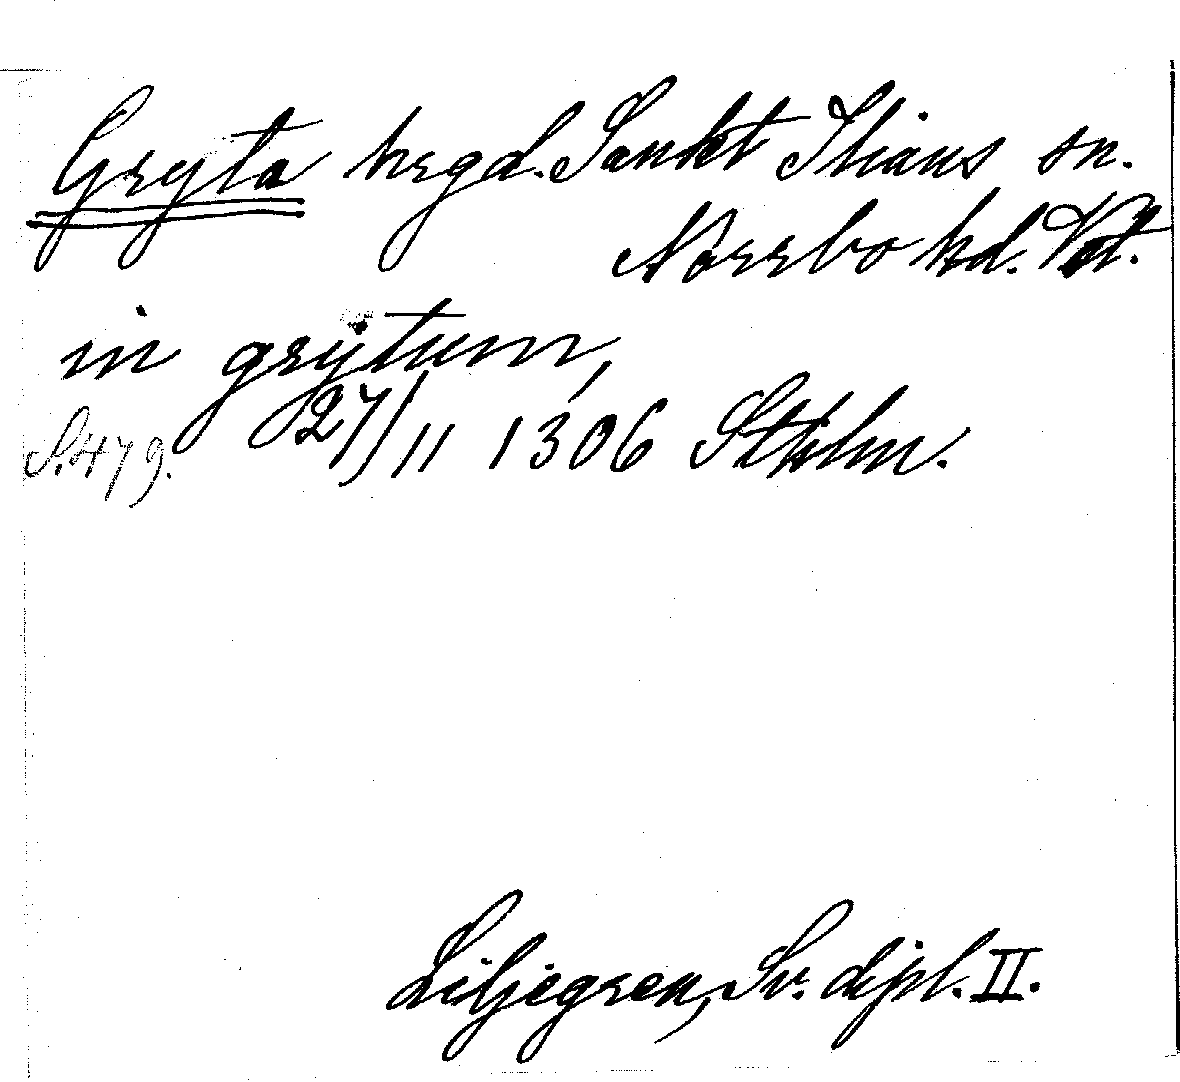 Gryta hrgd. Sankt Ilians sn.
Norrbo hd. Vstm.
in grytum,
S. 479. 27/11 1306 Sthlm.
Liljegren, Sv. dipl. II.